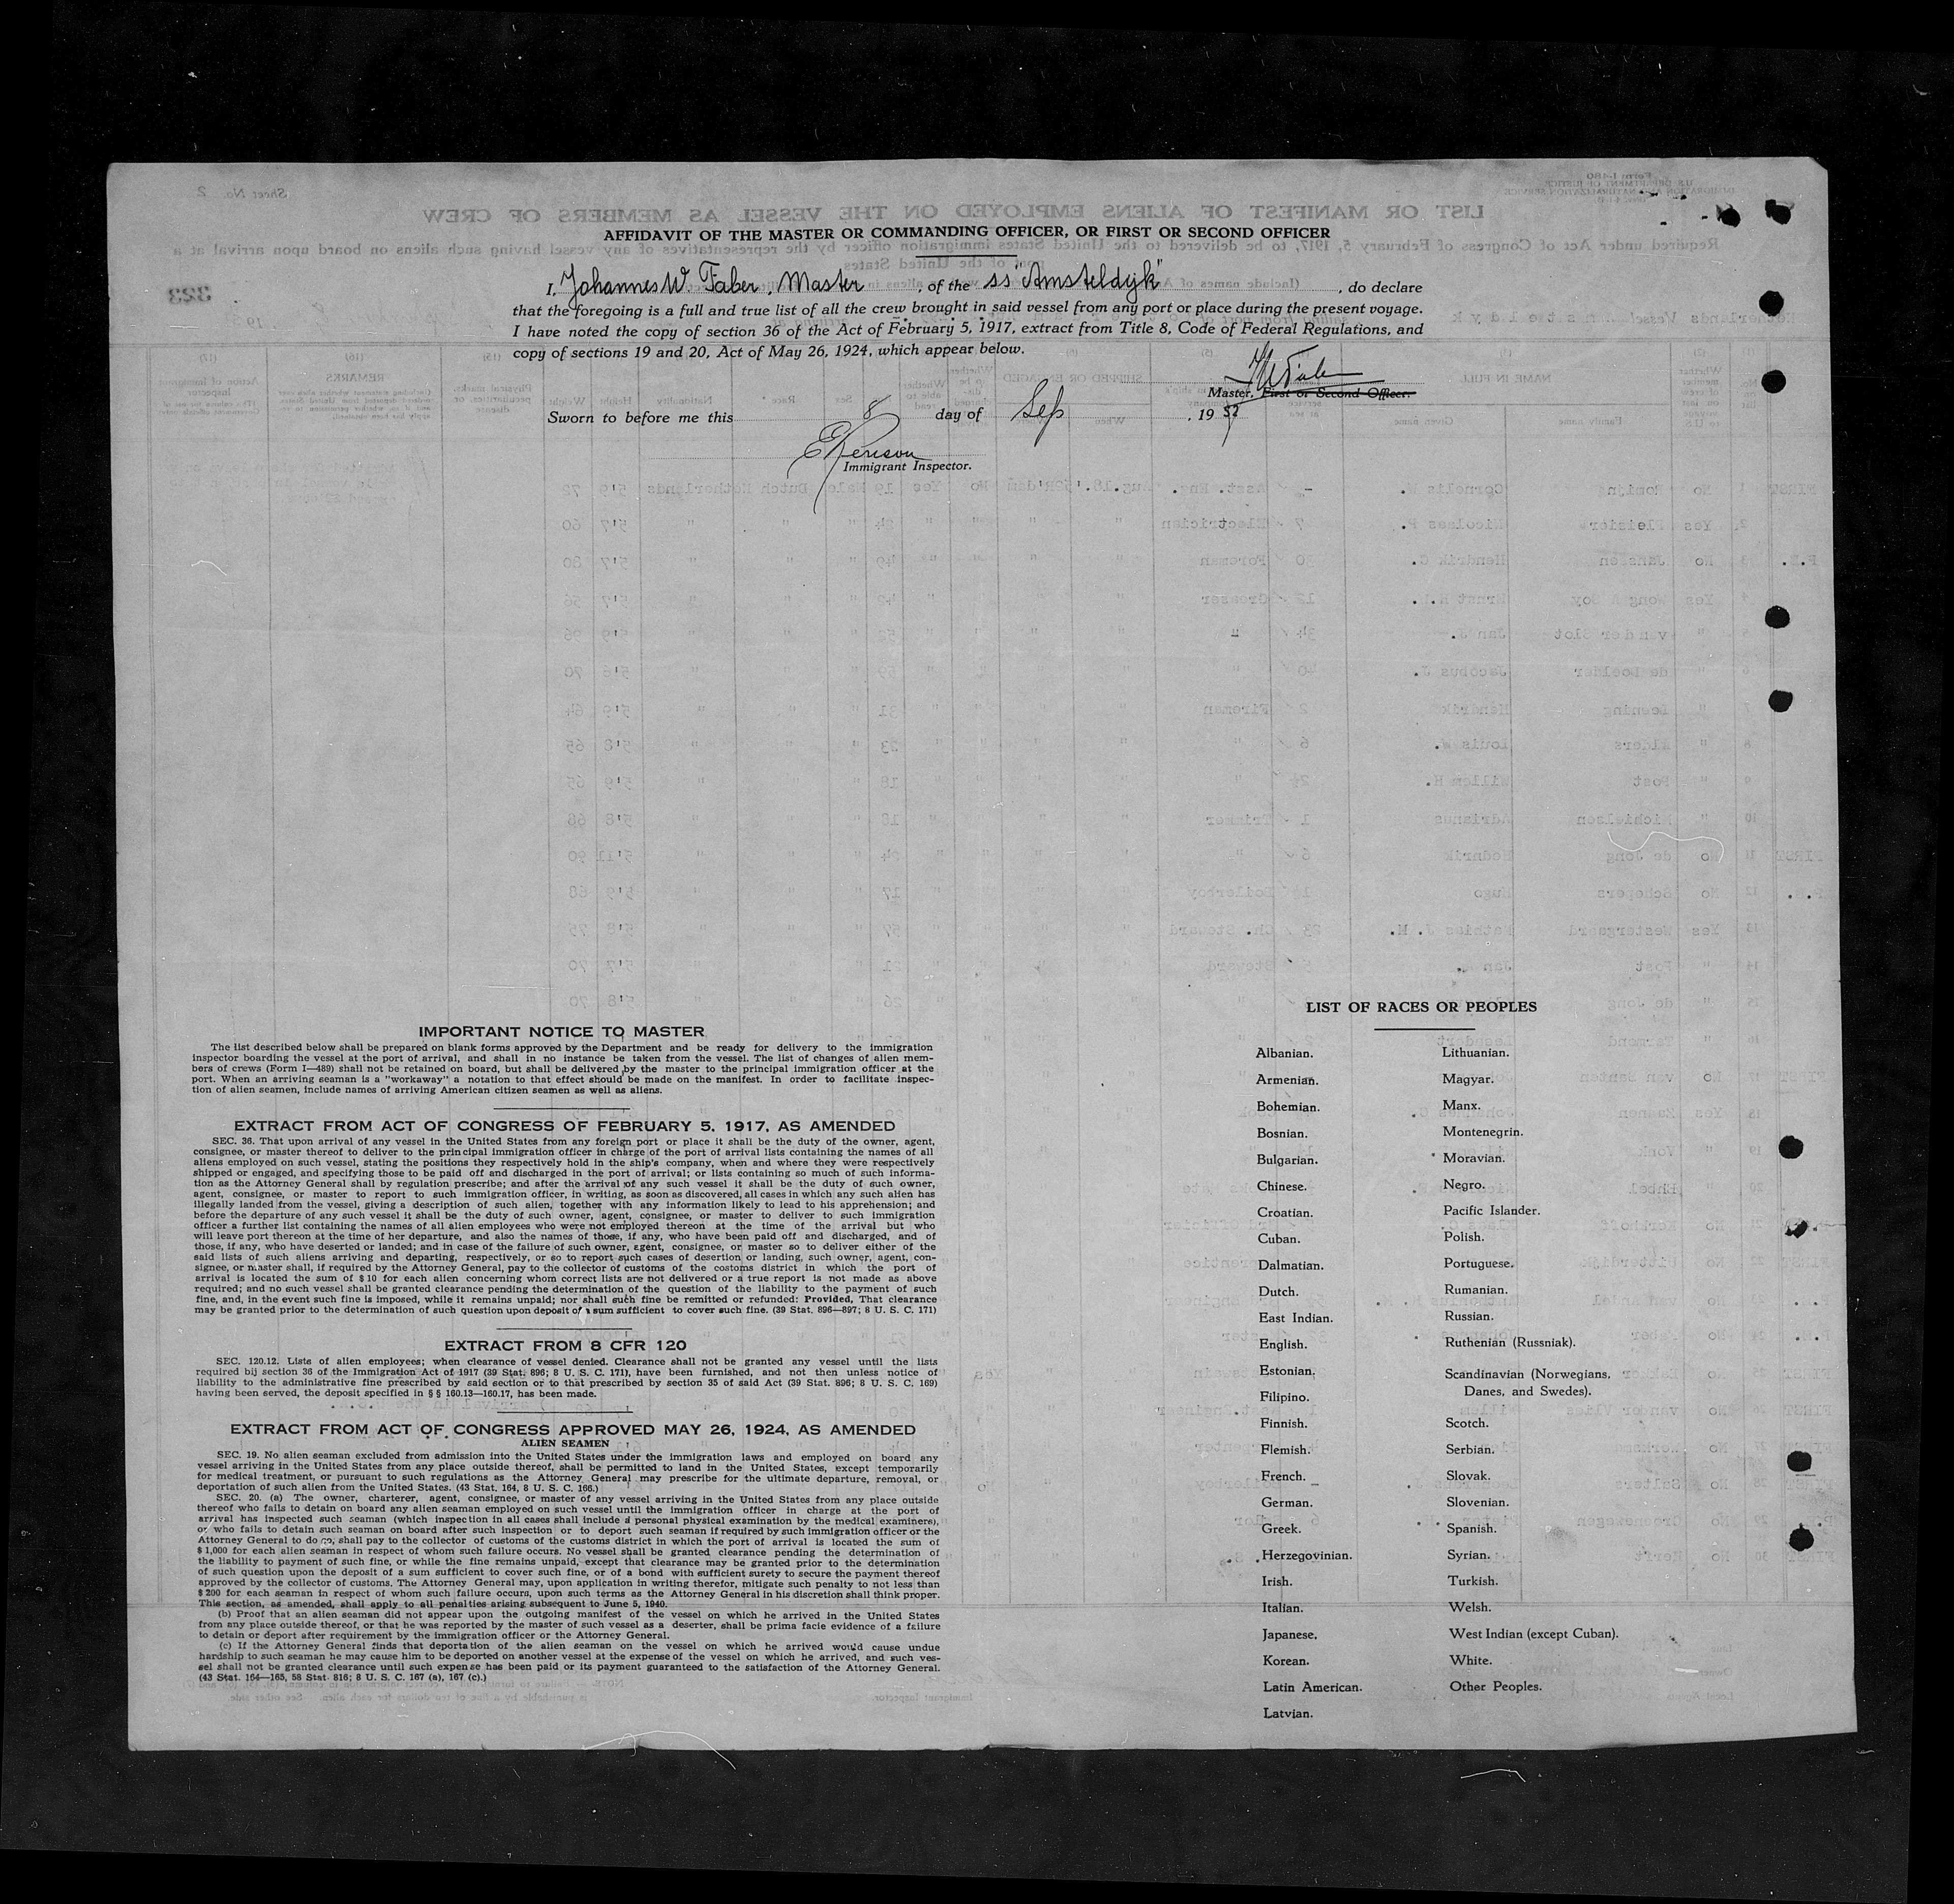 AFFIDAVIT OF THE MASTER OR COMMANDING OFFICER, OR FIRST OR SECOND OFFICER
I, Johannes W. Faber, Master, of the ss "Amsteldyk", do declare
that the foregoing is a full and true list of all the crew brought in said vessel from any port or place during the present voyage.
I have noted the copy of section 36 of the Act of February 5, 1917, extract from Title 8, Code of Federal Regulations, and
copy of sections 19 and 20, Act of May 26, 1924, which appear below.
Master, First or Second Officer.
Sworn to before me this 8 day of Sep, 1952
Immigrant Inspector.
IMPORTANT NOTICE TO MASTER
The list described below shall be prepared on blank forms approved by the Department and be ready for delivery to the immigration
inspector boarding the vessel at the port of arrival, and shall in no instance be taken from the vessel. The list of changes of alien mem-
bers of crews (Form I—489) shall not be retained on board, but shall be delivered by the master to the principal immigration officer at the
port. When an arriving seaman is a "workaway" a notation to that effect should be made on the manifest. In order to facilitate inspec-
tion of alien seamen, include names of arriving American citizen seamen as well as aliens.
EXTRACT FROM ACT OF CONGRESS OF FEBRUARY 5, 1917, AS AMENDED
SEC. 36. That upon arrival of any vessel in the United States from any foreign port or place it shall be the duty of the owner, agent,
consignee, or master thereof to deliver to the principal immigration officer in charge of the port of arrival lists containing the names of all
aliens employed on such vessel, stating the positions they respectively hold in the ship's company, when and where they were respectively
shipped or engaged, and specifying those to be paid off and discharged in the port of arrival; or lists containing so much of such informa-
tion as the Attorney General shall by regulation prescribe; and after the arrival of any such vessel it shall be the duty of such owner,
agent, consignee, or master to report to such immigration officer, in writing, as soon as discovered, all cases in which any such alien has
illegally landed from the vessel, giving a description of such alien, together with any information likely to lead to his apprehension; and
before the departure of any such vessel it shall be the duty of such owner, agent, consignee, or master to deliver to such immigration
officer a further list containing the names of all alien employees who were not employed thereon at the time of the arrival but who
will leave port thereon at the time of her departure, and also the names of those, if any, who have been paid off and discharged, and of
those, if any, who have deserted or landed; and in case of the failure of such owner, agent, consignee, or master so to deliver either of the
said lists of such aliens arriving and departing, respectively, or so to report such cases of desertion or landing, such owner, agent, con-
signee, or master shall, if required by the Attorney General, pay to the collector of customs of the costoms district in which the port of
arrival is located the sum of $ 10 for each alien concerning whom correct lists are not delivered or a true report is not made as above
required; and no such vessel shall be granted clearance pending the determination of the question of the liability to the payment of such
fine, and, in the event such fine is imposed, while it remains unpaid; nor shall such fine be remitted or refunded: Provided, That clearance
may be granted prior to the determination of such question upon deposit of a sum sufficient to cover such fine. (39 Stat. 896—897; 8 U. S. C. 171)
EXTRACT FROM 8 CFR 120
SEC. 120.12. Lists of alien employees; when clearance of vessel denied. Clearance shall not be granted any vessel until the lists
required bij section 36 of the Immigration Act of 1917 (39 Stat. 896; 8 U. S. C. 171), have been furnished, and not then unless notice of
liability to the administrative fine prescribed by said section or to that prescribed by section 35 of said Act (39 Stat. 896; 8 U. S. C. 169)
having been served, the deposit specified in § § 160.13—160.17, has been made.
EXTRACT FROM ACT OF CONGRESS APPROVED MAY 26, 1924, AS AMENDED
ALIEN SEAMEN
SEC. 19. No alien seaman excluded from admission into the United States under the immigration laws and employed on board any
vessel arriving in the United States from any place outside thereof, shall be permitted to land in the United States, except temporarily
for medical treatment, or pursuant to such regulations as the Attorney General may prescribe for the ultimate departure, removal, or
deportation of such alien from the United States. (43 Stat. 164, 8 U. S. C. 166.)
SEC. 20. (a) The owner, charterer, agent, consignee, or master of any vessel arriving in the United States from any place outside
thereof who fails to detain on board any alien seaman employed on such vessel until the immigration officer in charge at the port of
arrival has inspected such seaman (which inspection in all cases shall include a personal physical examination by the medical examiners),
or who fails to detain such seaman on board after such inspection or to deport such seaman if required by such immigration officer or the
Attorney General to do so, shall pay to the collector of customs of the customs district in which the port of arrival is located the sum of
$ 1,000 for each alien seaman in respect of whom such failure occurs. No vessel shall be granted clearance pending the determination of
the liability to payment of such fine, or while the fine remains unpaid, except that clearance may be granted prior to the determination
of such question upon the deposit of a sum sufficient to cover such fine, or of a bond with sufficient surety to secure the payment thereof
approved by the collector of customs. The Attorney General may, upon application in writing therefor, mitigate such penalty to not less than
$ 200 for each seaman in respect of whom such failure occurs, upon such terms as the Attorney General in his discretion shall think proper.
This section, as amended, shall apply to all penalties arising subsequent to June 5, 1940.
(b) Proof that an alien seaman did not appear upon the outgoing manifest of the vessel on which he arrived in the United States
from any place outside thereof, or that he was reported by the master of such vessel as a deserter, shall be prima facie evidence of a failure
to detain or deport after requirement by the immigration officer or the Attorney General.
(c) If the Attorney General finds that deportation of the alien seaman on the vessel on which he arrived would cause undue
hardship to such seaman he may cause him to be deported on another vessel at the expense of the vessel on which he arrived, and such ves-
sel shall not be granted clearance until such expense has been paid or its payment guaranteed to the satisfaction of the Attorney General.
(43 Stat. 164—165, 58 Stat. 816; 8 U. S. C. 167 (a), 167 (c).)
LIST OF RACES OR PEOPLES
Albanian.
Armenian.
Bohemian.
Bosnian.
Bulgarian.
Chinese.
Croatian.
Cuban.
Dalmatian.
Dutch.
East Indian.
English.
Estonian.
Filipino.
Finnish.
Flemish.
French.
German.
Greek.
Herzegovinian.
Irish.
Italian.
Japanese.
Korean.
Latin American.
Latvian.
Lithuanian.
Magyar.
Manx.
Montenegrin.
Moravian.
Negro.
Pacific Islander.
Polish.
Portuguese.
Rumanian.
Russian.
Ruthenian (Russniak).
Scandinavian (Norwegians,
Danes, and Swedes).
Scotch.
Serbian.
Slovak.
Slovenian.
Spanish.
Syrian.
Turkish.
Welsh.
West Indian (except Cuban).
White.
Other Peoples.